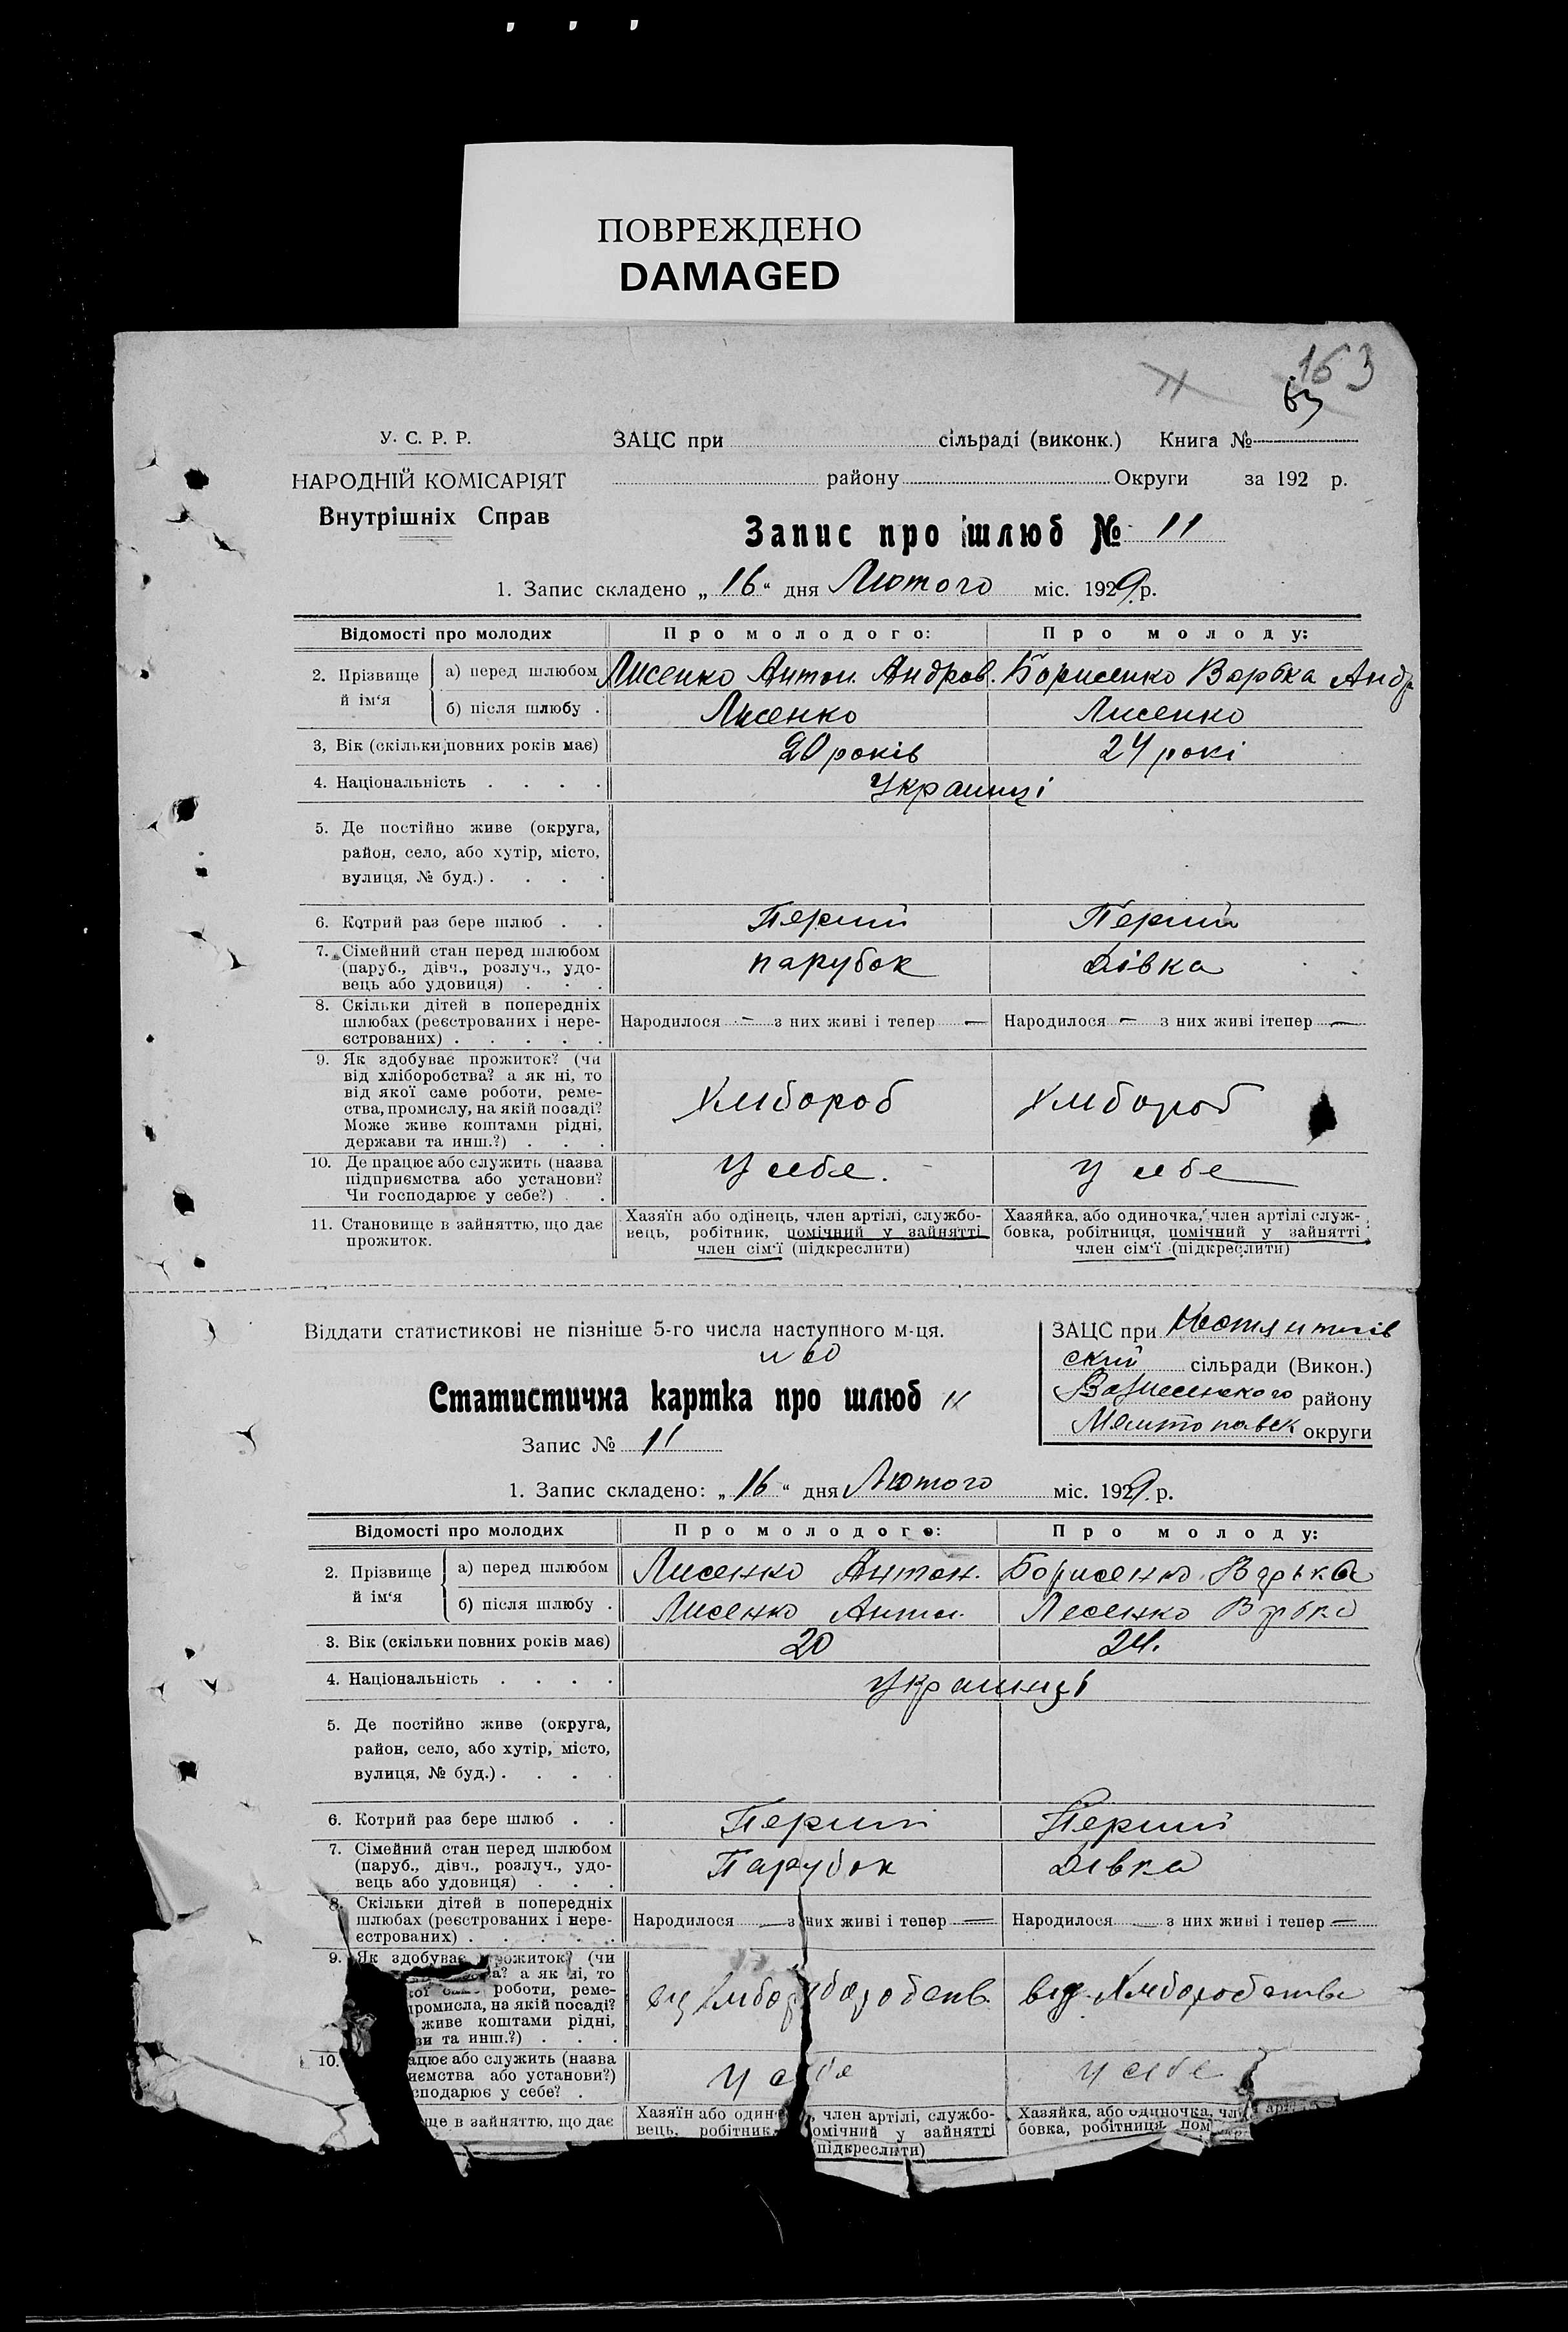 ПОВРЕЖДЕНО
DAMAGED
163
63
У. С. Р. Р.
НАРОДНІЙ КОМІСАРІЯТ
Внутрішніх Справ
ЗАЦС при сільраді (виконк.) Книга №
району Округи за 192 р.
Запис про шлюб № 11
1. Запис складено „16“ дня Лютого міс. 1929 р.
Відомості про молодих Про молодого: Про молоду:
2. Прізвище й ім‘я
а) перед шлюбом Лисенко Антон. Андров. Борисенко Варька Андр
б) після шлюбу . Лисенко Лисенко
3, Вік (скільки повних років має) 20 років 24 рокі
4. Національність . . . . Українці
5. Де постійно живе (округа,
район, село, або хутір, місто,
вулиця, № буд.) . . . .
6. Котрий раз бере шлюб . . Перший Перший
7. Сімейний стан перед шлюбом
(паруб., дівч., розлуч., удо-
вець або удовиця) . . . парубок дівка
8. Скільки дітей в попередніх
шлюбах (реєстрованих і нере-
єстрованих) . . . . .
Народилося — з них живі і тепер — Народилося — з них живі ітепер —
9. Як здобуває прожиток? (чи
від хліборобства? а як ні, то
від якої саме роботи, реме-
ства, промислу, на якій посаді?
Може живе коштами рідні,
держави та инш.?) . . .
Хлібороб Хлібороб
10. Де працює або служить (назва
підприємства або установи?
Чи господарює у себе?) . .
У себе. У себе
11. Становище в зайняттю, що дає
прожиток.
Хазяїн або одінець, член артілі, службо-
вець, робітник, помічний у зайнятті
член сім‘ї (підкреслити)
Хазяйка, або одиночка, член артілі служ-
бовка, робітниця, помічний у зайнятті
член сім‘ї (підкреслити)
Віддати статистикові не пізніше 5-го числа наступного м-ця.
Статистична картка про шлюб 11
Запис № 11
ЗАЦС при
ский сільради (Викон.)
району
округи
1. Запис складено: „16“ дня Лютого міс. 1929 р.
Відомості про молодих Про молодого: Про молоду:
2. Прізвище й ім‘я
а) перед шлюбом Лисенко Антон. Борисенко Варька
б) після шлюбу . Лисенко Антон. Лесенко Врька
3. Вік (скільки повних років має) 20 24.
4. Національність . . . . Українці
5. Де постійно живе (округа,
район, село, або хутір, місто,
вулиця, № буд.) . . . .
6. Котрий раз бере шлюб . . Перший Перший
7. Сімейний стан перед шлюбом
(паруб., дівч., розлуч., удо-
вець або удовиця) . . . Парубок Дівка
8. Скільки дітей в попередніх
шлюбах (реєстрованих і нере-
єстрованих) . . . . .
Народилося — з них живі і тепер — Народилося — з них живі і тепер —
9. Як здобуває прожиток? (чи
а як ні, то
роботи, реме-
промисла, на якій посаді?
живе коштами рідні,
та инш.?) . . .
від Хліборобства
10. або служить (назва
або установи?)
у себе? .
у себе у себе
в зайняттю, що дає
Хазяїн або член артілі, службо-
вець, робітник, помічний у зайнятті
(підкреслити)
Хазяйка, або одиночка,
бовка, робітниця,